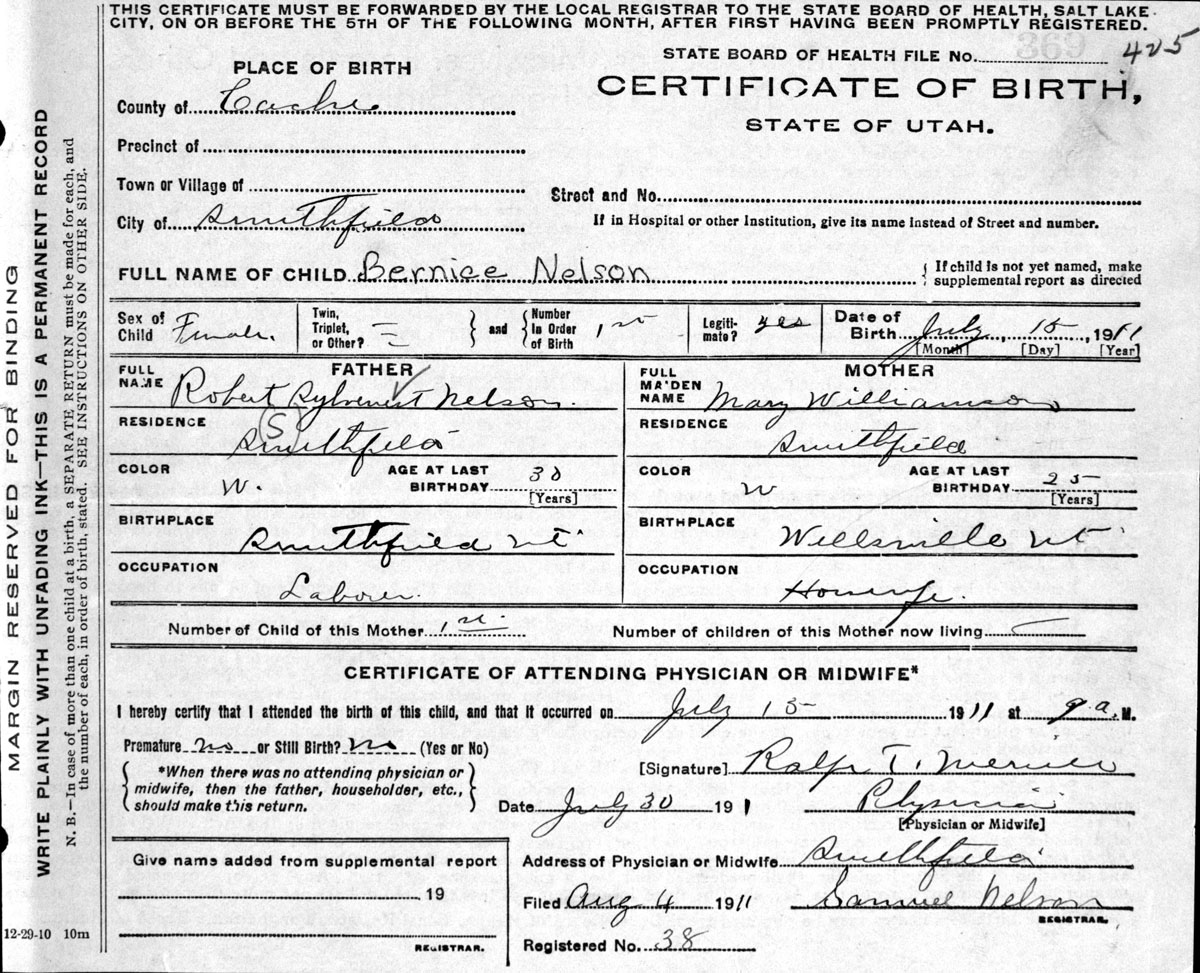 THIS CERTIFICATE MUST BE FORWARDED BY THE LOCAL REGISTRAR TO THE STATE BOARD OF HEALTH, SALT LAKE
CITY, ON OR BEFORE THE 5TH OF THE FOLLOWING MONTH, AFTER FIRST HAVING BEEN PROMPTLY REGISTERED.
MARGIN RESERVED FOR BINDING
WRITE PLAINLY WITH UNFADING INK—THIS IS A PERMANENT RECORD
N. B.—In case of more than one child at a birth, a SEPARATE RETURN must be made for each, and
the number of each, in order of birth, stated. SEE INSTRUCTIONS ON OTHER SIDE.
STATE BOARD OF HEALTH FILE No. 425
CERTIFICATE OF BIRTH,
STATE OF UTAH.
PLACE OF BIRTH
County of Cache
Precinct of
Town or Village of
Street and No.
City of Smithfield
If in Hospital or other Institution, give its name instead of Street and number.
FULL NAME OF CHILD Bernice Nelson
{ If child is not yet named, make
supplemental report as directed
Sex of Child Female.
Twin, Triplet, or Other? =
and
Number In Order of Birth 1st
Legiti-mate? yes
Date of Birth July 15 1911
[Month] [Day] [Year]
FATHER
FULL NAME Robert Nelson
RESIDENCE
S
Smithfield
COLOR W.
AGE AT LAST BIRTHDAY 30
[Years]
BIRTHPLACE
Smithfield Ut
OCCUPATION
Laborer.
MOTHER
FULL MA'DEN NAME Mary Williamson
RESIDENCE
Smithfield
COLOR W
AGE AT LAST BIRTHDAY 25
[Years]
BIRTHPLACE
Wellsville Ut
OCCUPATION
Housewife.
Number of Child of this Mother 1st
Number of children of this Mother now living
CERTIFICATE OF ATTENDING PHYSICIAN OR MIDWIFE*
I hereby certify that I attended the birth of this child, and that it occurred on July 15 1911 at 9 a. M.
Premature no or Still Birth? no (Yes or No)
*When there was no attending physician or
midwife, then the father, householder, etc.,
should make this return.
[Signature] Ralph T. Merrill
Date July 30 1911 Physician
[Physician or Midwife]
Give name added from supplemental report
19
REGISTRAR.
Address of Physician or Midwife Smithfield
Filed Aug 4 1911 Samuel Nelson
REGISTRAR.
Registered No. 38
12-29-10 10m